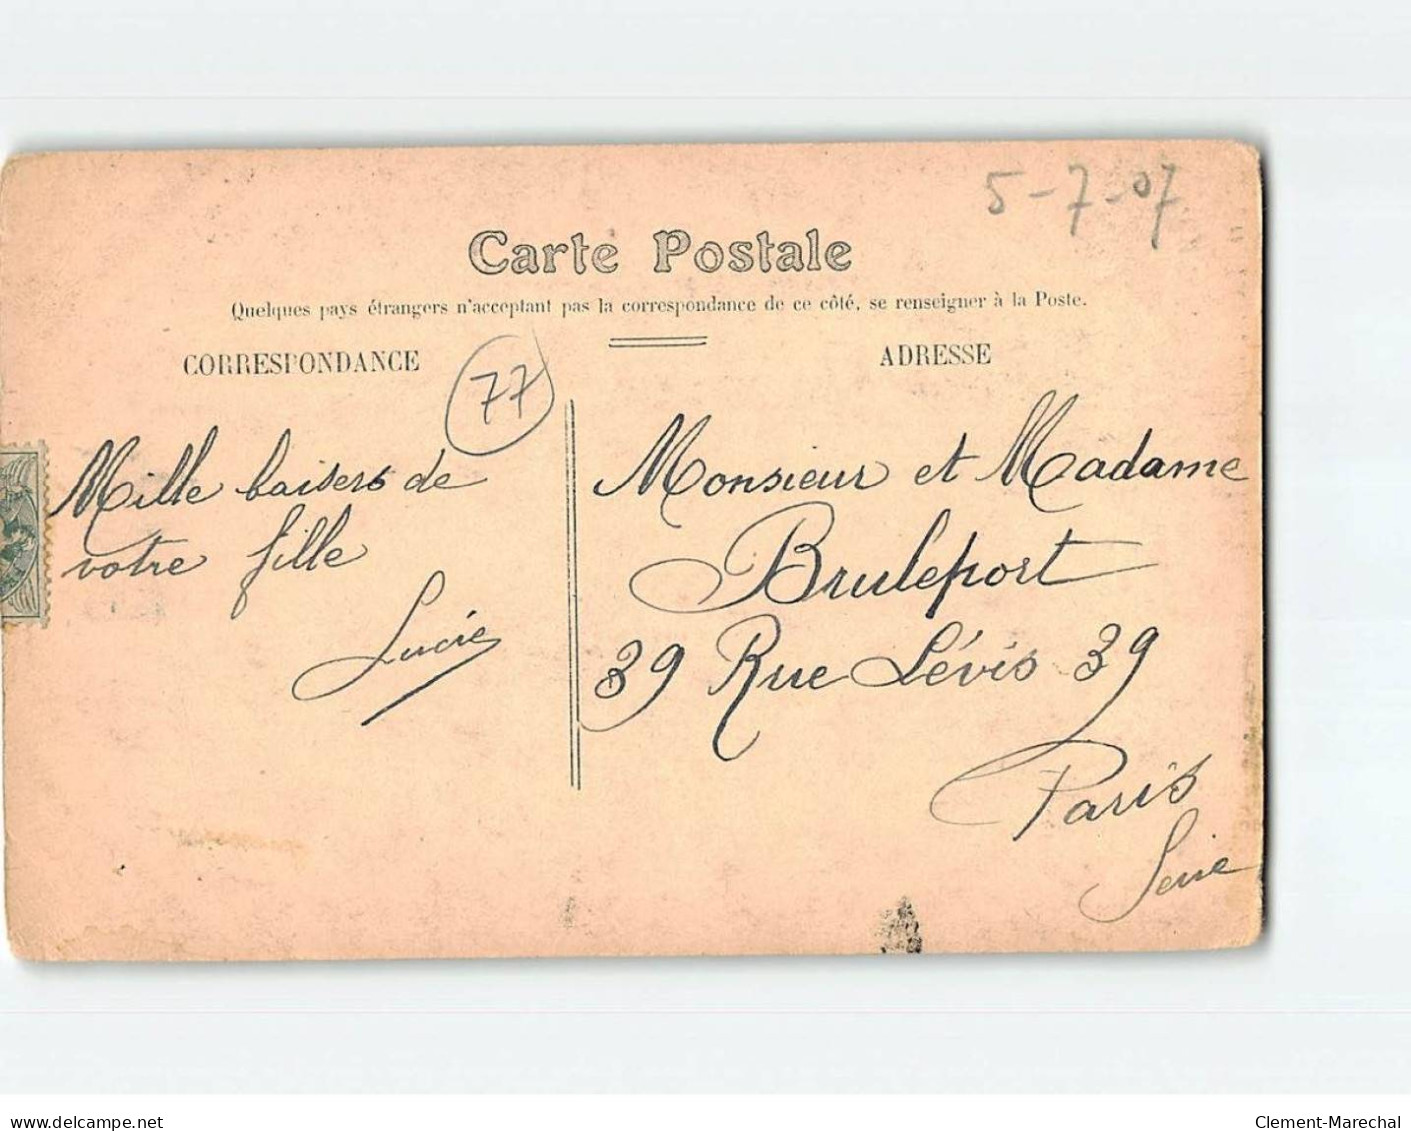 5-7-07
Carte Postale
Quelques pays étrangers n'acceptant pas la correspondance de ce côté, se renseigner à la Poste.
CORRESPONDANCE
77
Mille baisers de
votre fille
Lucie
ADRESSE
Monsieur et Madame
Bruleport
39 Rue Lévis 39
Paris
Seine
www.delcampe.net
Clement-Marechal